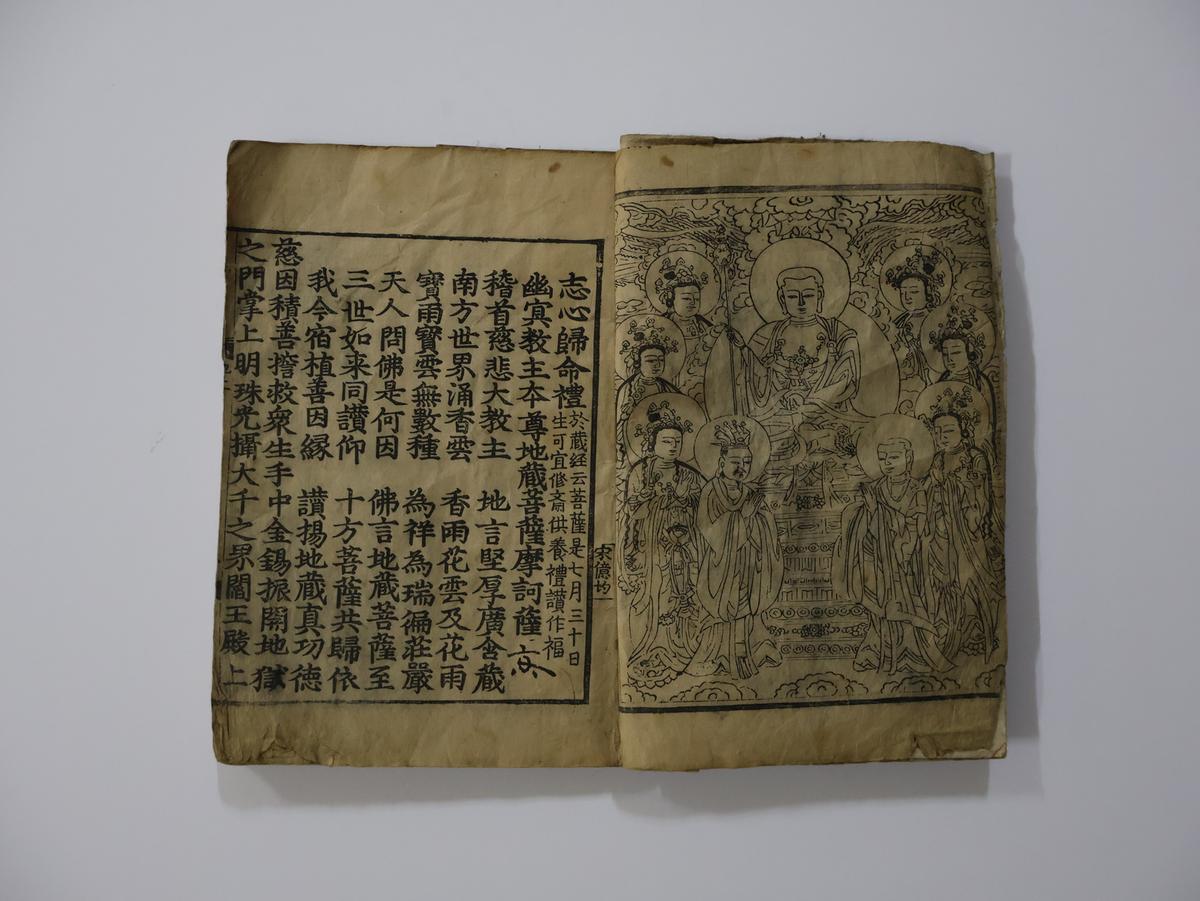 志心歸命禮
於藏經云菩薩是七月三十日
生可宜修齋供養禮讃作福
幽冥教主本尊地藏菩薩摩訶薩
稽首慈悲大教主 地言堅厚廣含藏
南方世界涌香雲 香雨花雲及花雨
寶雨寶雲無數種 為祥為瑞徧莊嚴
天人問佛是何因 佛言地藏菩薩至
三世如来同讃仰 十方菩薩共歸依
我今宿植善因縁 讃揚地藏真功徳
慈因積善誓救衆生手中金錫振開地獄
之門掌上明珠光攝大千之界閻王殿上